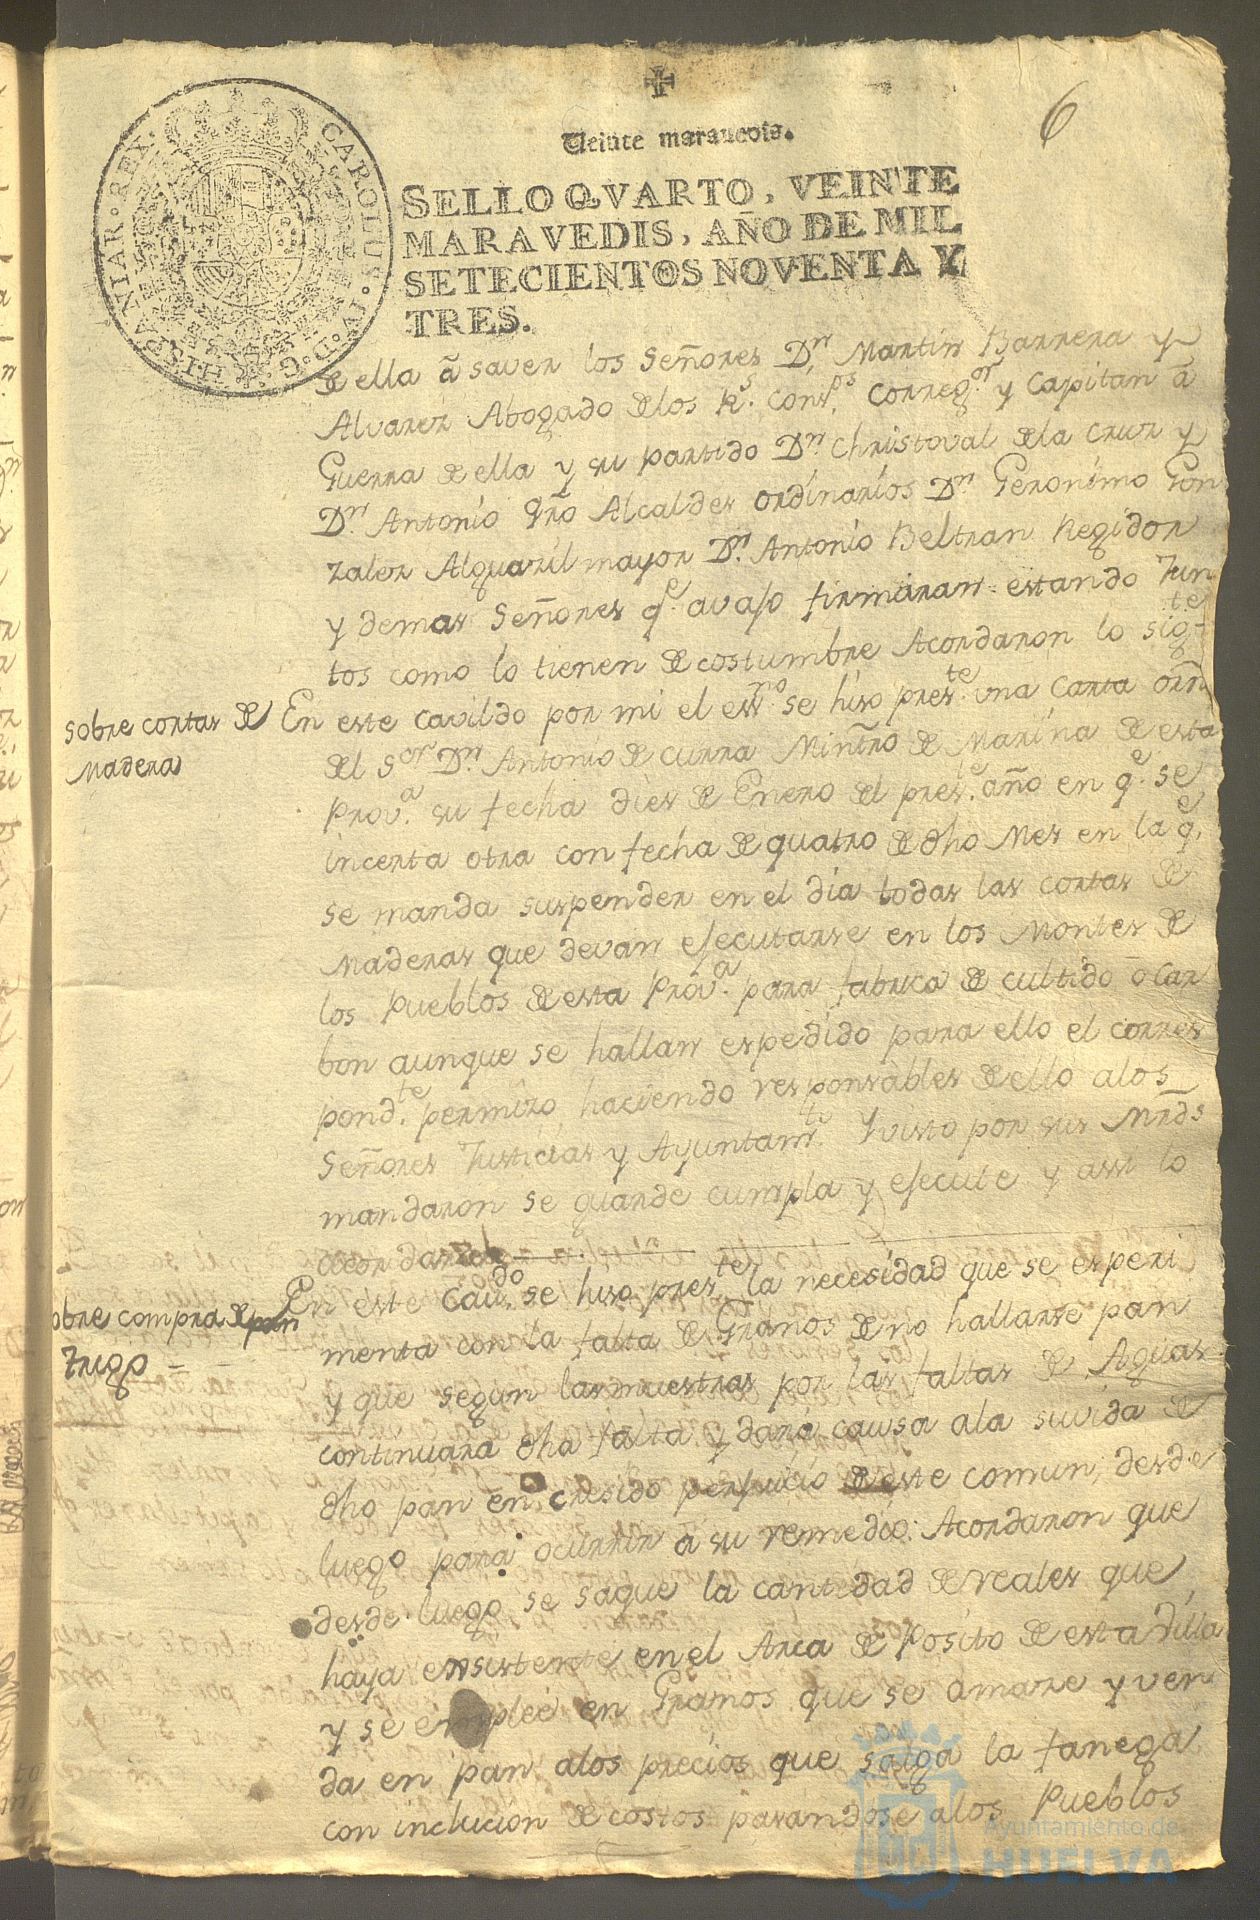 6
Veinte maravedis.
SELLO QVARTO, VEINTE
MARAVEDIS, AÑO DE MIL
SETECIENTOS NOVENTA Y
TRES.
CAROLUS. IV. D. G. HISPANIAR. REX.
de ella â saver los Señores Dn. Martin Barrera y
Alvarez Abogado delos Rs. Consos. Corregor. y Capitan â
Guerra de ella y su partido Dn. Christoval dela Cruz y
Dn. Antonio Alcaldes ordinarios Dn. Geronimo Gon
zalez Alguazil mayor Dn. Antonio Beltran Regidor
y demas Señores qe. avajo firmaran estando Jun
tos como lo tienen de costumbre Acordaron lo sigte
sobre cortas de
Madera
En este cavildo por mi el essno. se hiso preste. una Carta orn
del Sor. Dn. Antonio de Curra Mintro de Marina de esta
Prova. su fecha dies de Enero del preste. año en qe. se
incerta otra con fecha de quatro de dho Mes en la qe.
se manda suspender en el dia todas las cortas de
Maderas que devan ejecutarse en los Montes de
los Pueblos de esta Prova. para fabrica de cultido o Car
bon aunque se hallan espedido para ello el corres
pondte. permizo haciendo responsables de ello alos
Señores Justicias y Ayuntamto. Y visto por sus Mrds
mandaron se guarde cumpla y ejecute y assi lo
acordaron
obre compra de pan
Trigo
En este Cavdo. se hiso preste. la necesidad que se esperi
menta con la falta de Granos de no hallarse pan
y que segun las muestras por las faltas de Aguas
continuara dha falta y dara causa ala suvida de
dho pan en cresido perjuicio de este comun; desde
luego para ocurrir a su remedio: Acordaron que
desde luego se saque la cantidad de reales que
haya ensistente en el Arca de Posito de esta Villa
y se emplee en Granos que se amaze y ven
da en pan alos precios que salga la fanega
con inclucion de costos pasandose alos Pueblos
Ayuntamiento de
HUELVA